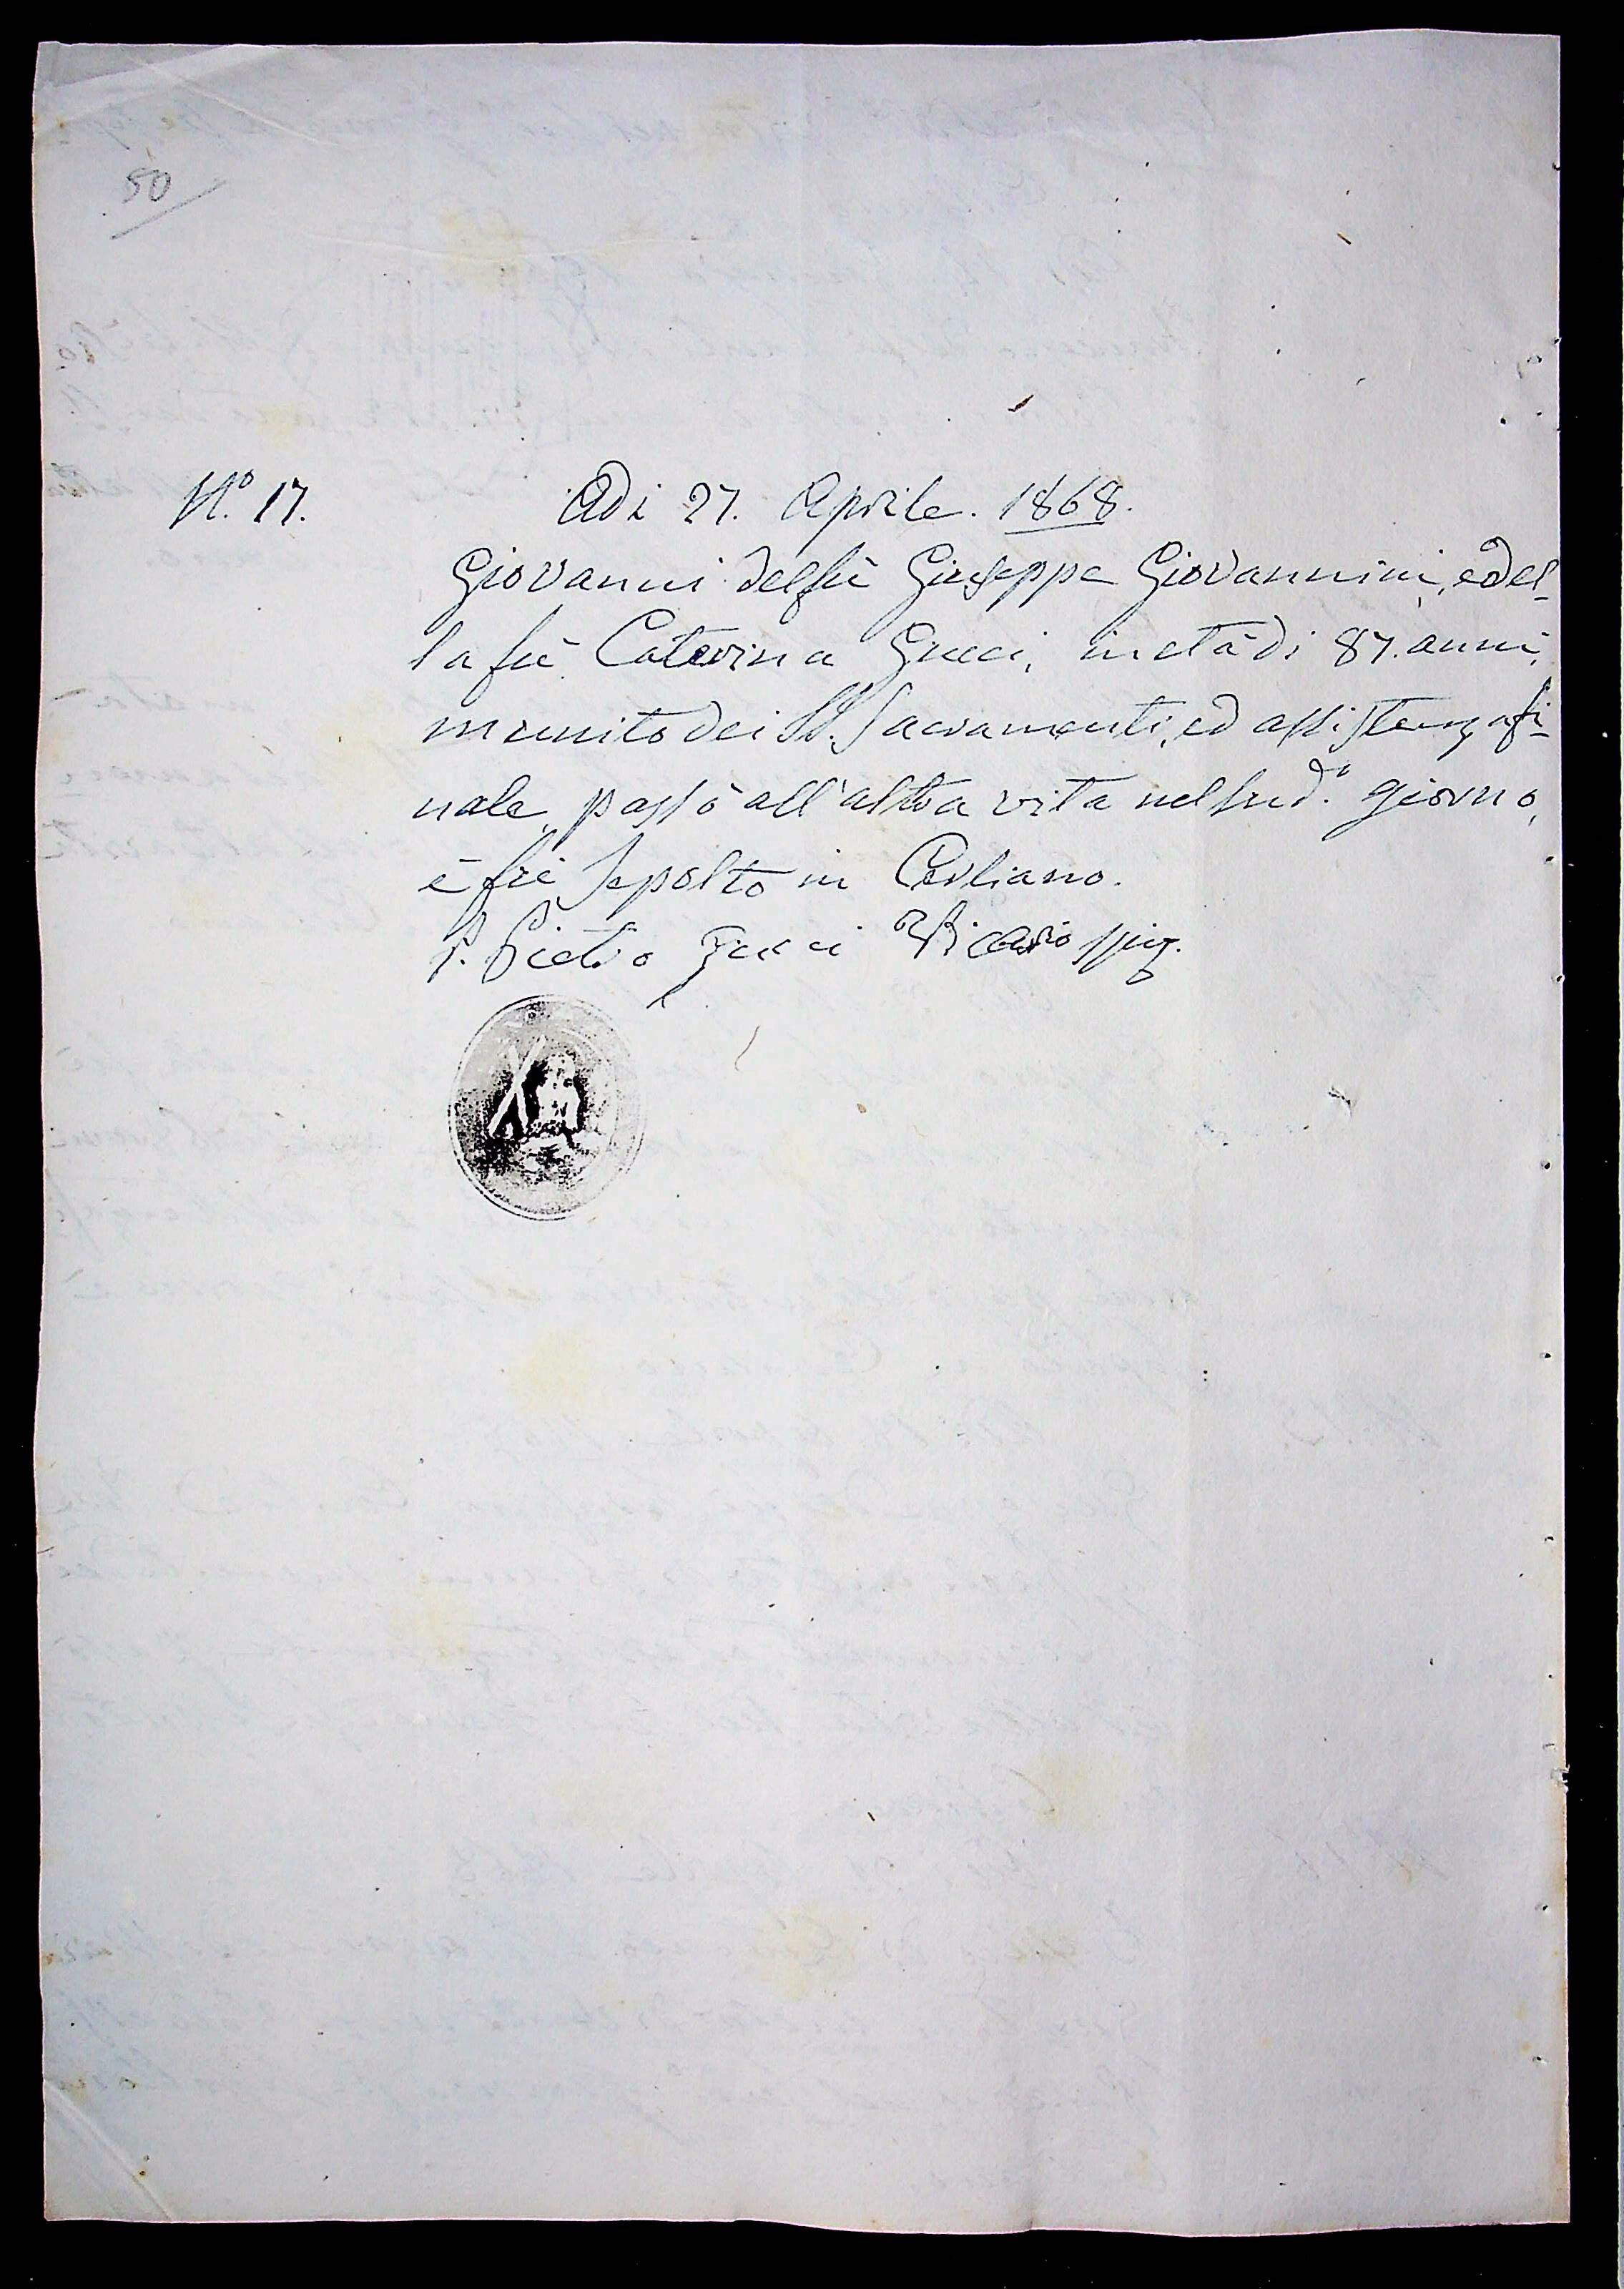 50
N.º 17.
Adi 27. Aprile. 1868.
Giovanni del fù Giuseppe Giovannini, e del-
la fù Caterina Gucci, in età di 87. anni,
munito dei SS. Sacramenti, ed assistenza fi-
nale, passò all'altra vita nel sud.º giorno,
e fù sepolto in Corliano.
P. Pietro Vicario